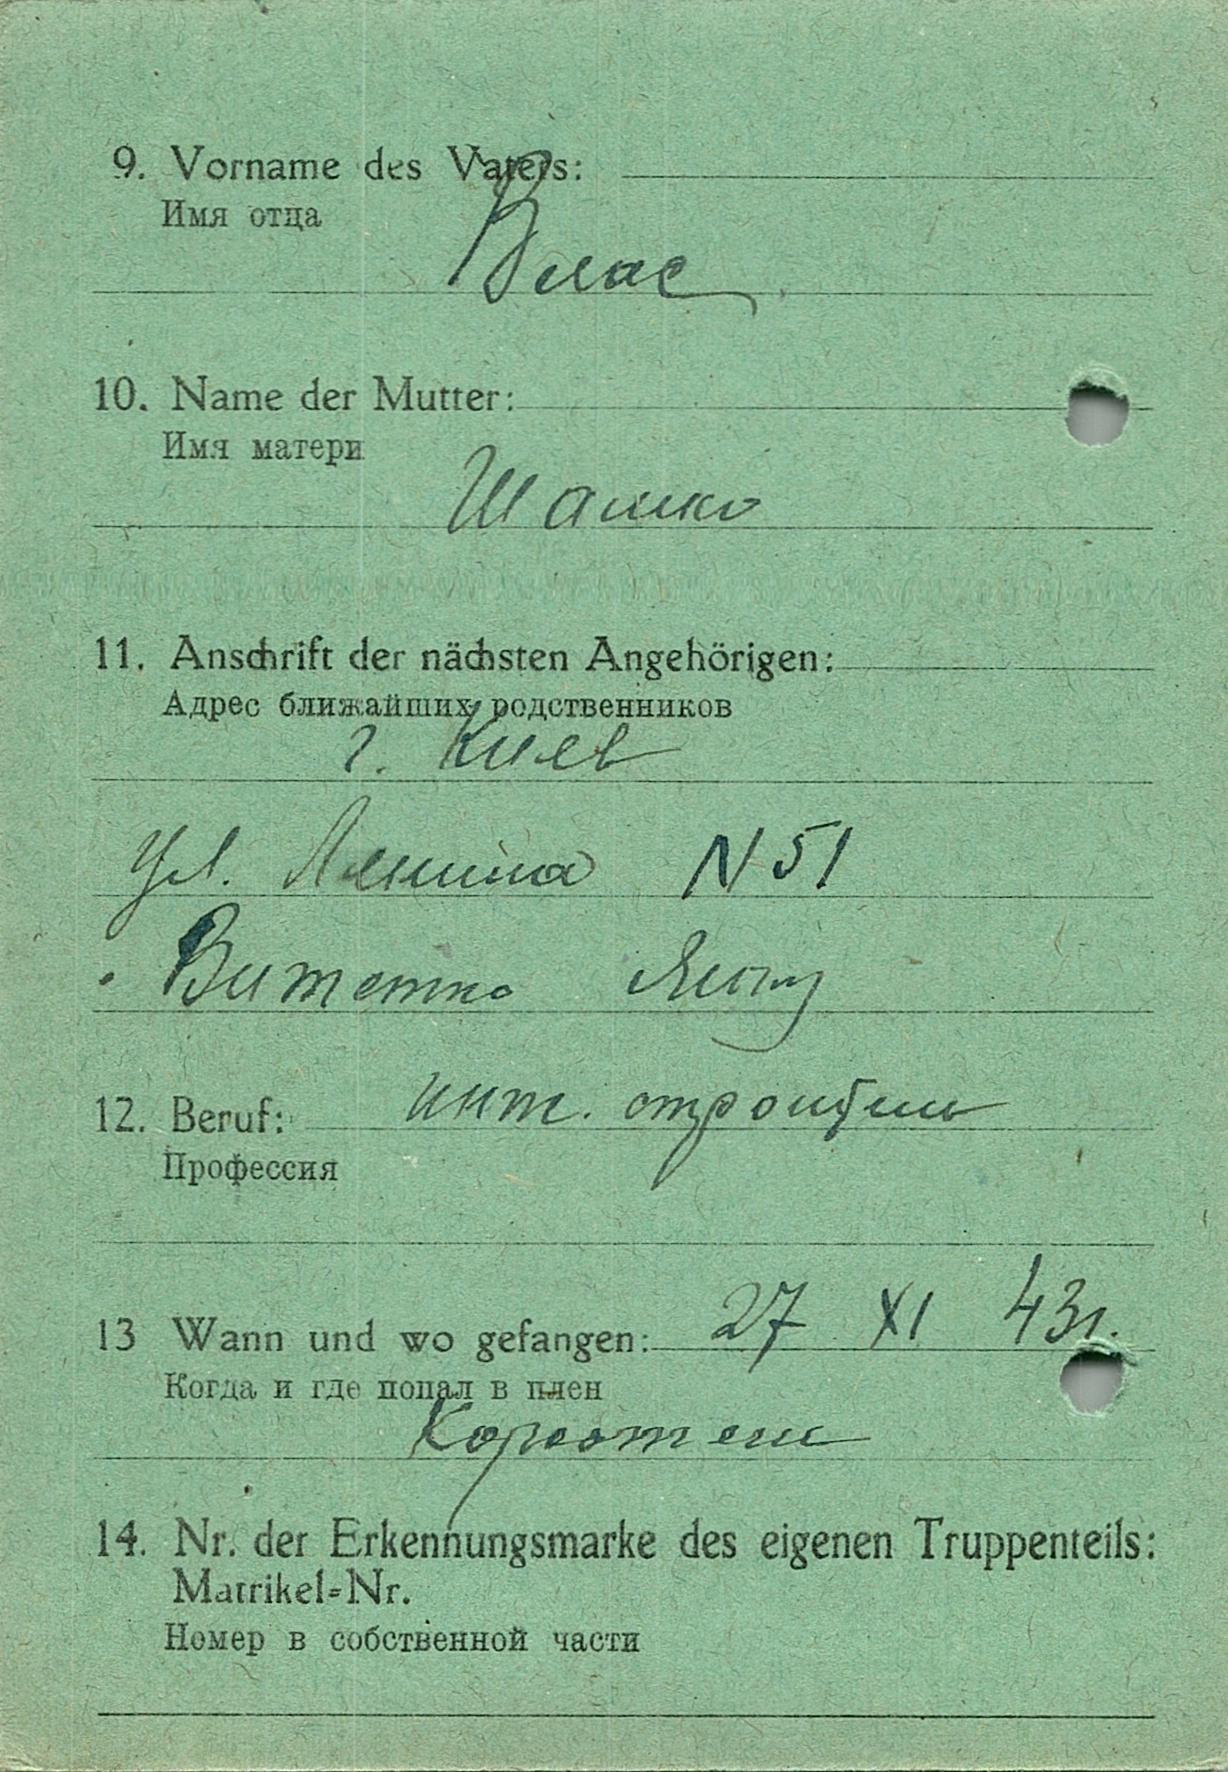 9. Vorname des Vaters:
Имя отца
Влас
10. Name der Mutter:
Имя матери
Шашко
11. Anschrift der nächsten Angehörigen:
Адрес ближайших родственников
г. Киев
ул. Ленина N 51
Витетко
12. Beruf: инж. строитель
Профессия
13 Wann und wo gefangen: 27 XI 43г.
Когда и где попал в плен
Коростень
14. Nr. der Erkennungsmarke des eigenen Truppenteils:
Matrikel-Nr.
Номер в собственной части